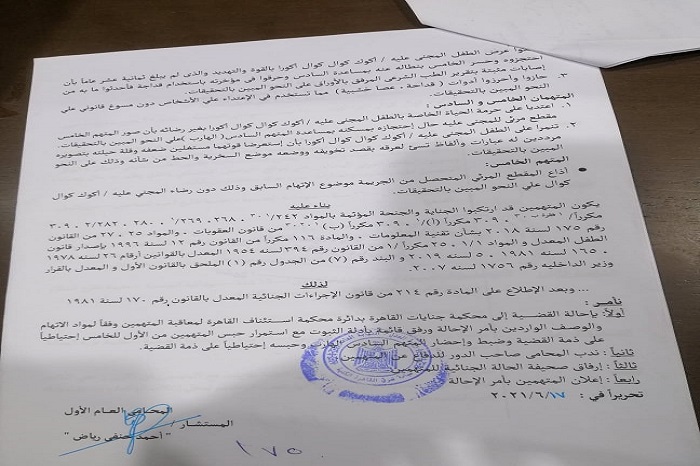 هتكوا عرض الطفل المجني عليه / أكوك كوال كوال أكورا بالقوة والتهديد والذى لم يبلغ ثمانية عشر عاماً بأن
احتجزوه وحسر الخامس بنطاله عنه بمساعدة السادس وحرقوا فى مؤخرته باستخدام قداحة فأحدثوا ما به من
إصابات مثبتة بتقرير الطب الشرعى المرفق بالأوراق على النحو المبين بالتحقيقات.
٣. حازوا وأحرزوا أدوات ( قداحة - عصا خشبية ) مما تستخدم في الإعتداء علي الأشخاص دون مسوغ قانوني علي
النحو المبين بالتحقيقات.
المتهمان الخامس و السادس :
١. اعتديا على حرمة الحياة الخاصة بالطفل المجني عليه / أكوك كوال كوال أكورا بغير رضائه بأن صور المتهم الخامس
مقطع مرئي للمجني عليه حال إحتجازه بمسكنه بمساعدة المتهم السادس( الهارب )علي النحو المبين بالتحقيقات.
٢. تنمرا على الطفل المجني عليه / أكوك كوال كوال أكورا بأن إستعرضا قوتهما مستغلين ضعفه وقلة حيلته بتصويره
مرددين له عبارات وألفاظ تسئ لعرقه بقصد تخويفه ووضعه موضع السخرية والحط من شأنه وذلك على النحو
المبين بالتحقيقات.
المتهم الخامس:
• أذاع المقطع المرئي المتحصل من الجريمة موضوع الإتهام السابق وذلك دون رضاء المجني عليه / أكوك كوال
كوال علي النحو المبين بالتحقيقات.
بناء عليه
يكون المتهمين قد ارتكبوا الجناية والجنحة المؤثمة بالمواد
من قانون العقوبات . والمواد ٢٥ ، ٢٧ من القانون
رقم ١٧٥ لسنة ٢٠١٨ بشأن تقنية المعلومات . والمادة ١١٦ مكرراً من القانون رقم ١٢ لسنة ١٩٩٦ بإصدار قانون
الطفل المعدل و المواد ١/١ ، ٢٥ مكرراً /١ من القانون رقم ٣٩٤ لسنة ١٩٥٤ المعدل بالقوانين أرقام ٢٦ لسنة ١٩٧٨
، ١٦٥ لسنة ١٩٨١ ، ٥ لسنة ٢٠١٩ و البند رقم (٧) من الجدول رقم (١) الملحق بالقانون الأول و المعدل بالقرار
وزير الداخليه رقم ١٧٥٦ لسنة ٢٠٠٧.
لذلك
... وبعد الإطلاع على المادة رقم ٢١٤ من قانون الإجراءات الجنائية المعدل بالقانون رقم ١٧٠ لسنة ١٩٨١
نأمر :
أولاً: بإحالة القضية إلى محكمة جنايات القاهرة بدائرة محكمة استئناف القاهرة لمعاقبة المتهمين وفقاً لمواد الاتهام
والوصف الواردين بأمر الإحالة ورفق قائمة بأدلة الثبوت مع استمرار حبس المتهمين من الأول للخامس إحتياطياً
على ذمة القضية وضبط وإحضار المتهم السادس الهارب وحبسه إحتياطياً على ذمة القضية.
ثانياً : ندب المحامى صاحب الدور للدفاع عن المتهمين
ثالثاً : إرفاق صحيفة الحالة الجنائية للمتهمين
رابعاً : إعلان المتهمين بأمر الإحالة
تحريراً في : ٢٠٢١/٦/١٧
المحامي العام الأول
المستشار/
" أحمد حنفى رياض "
١٧٥